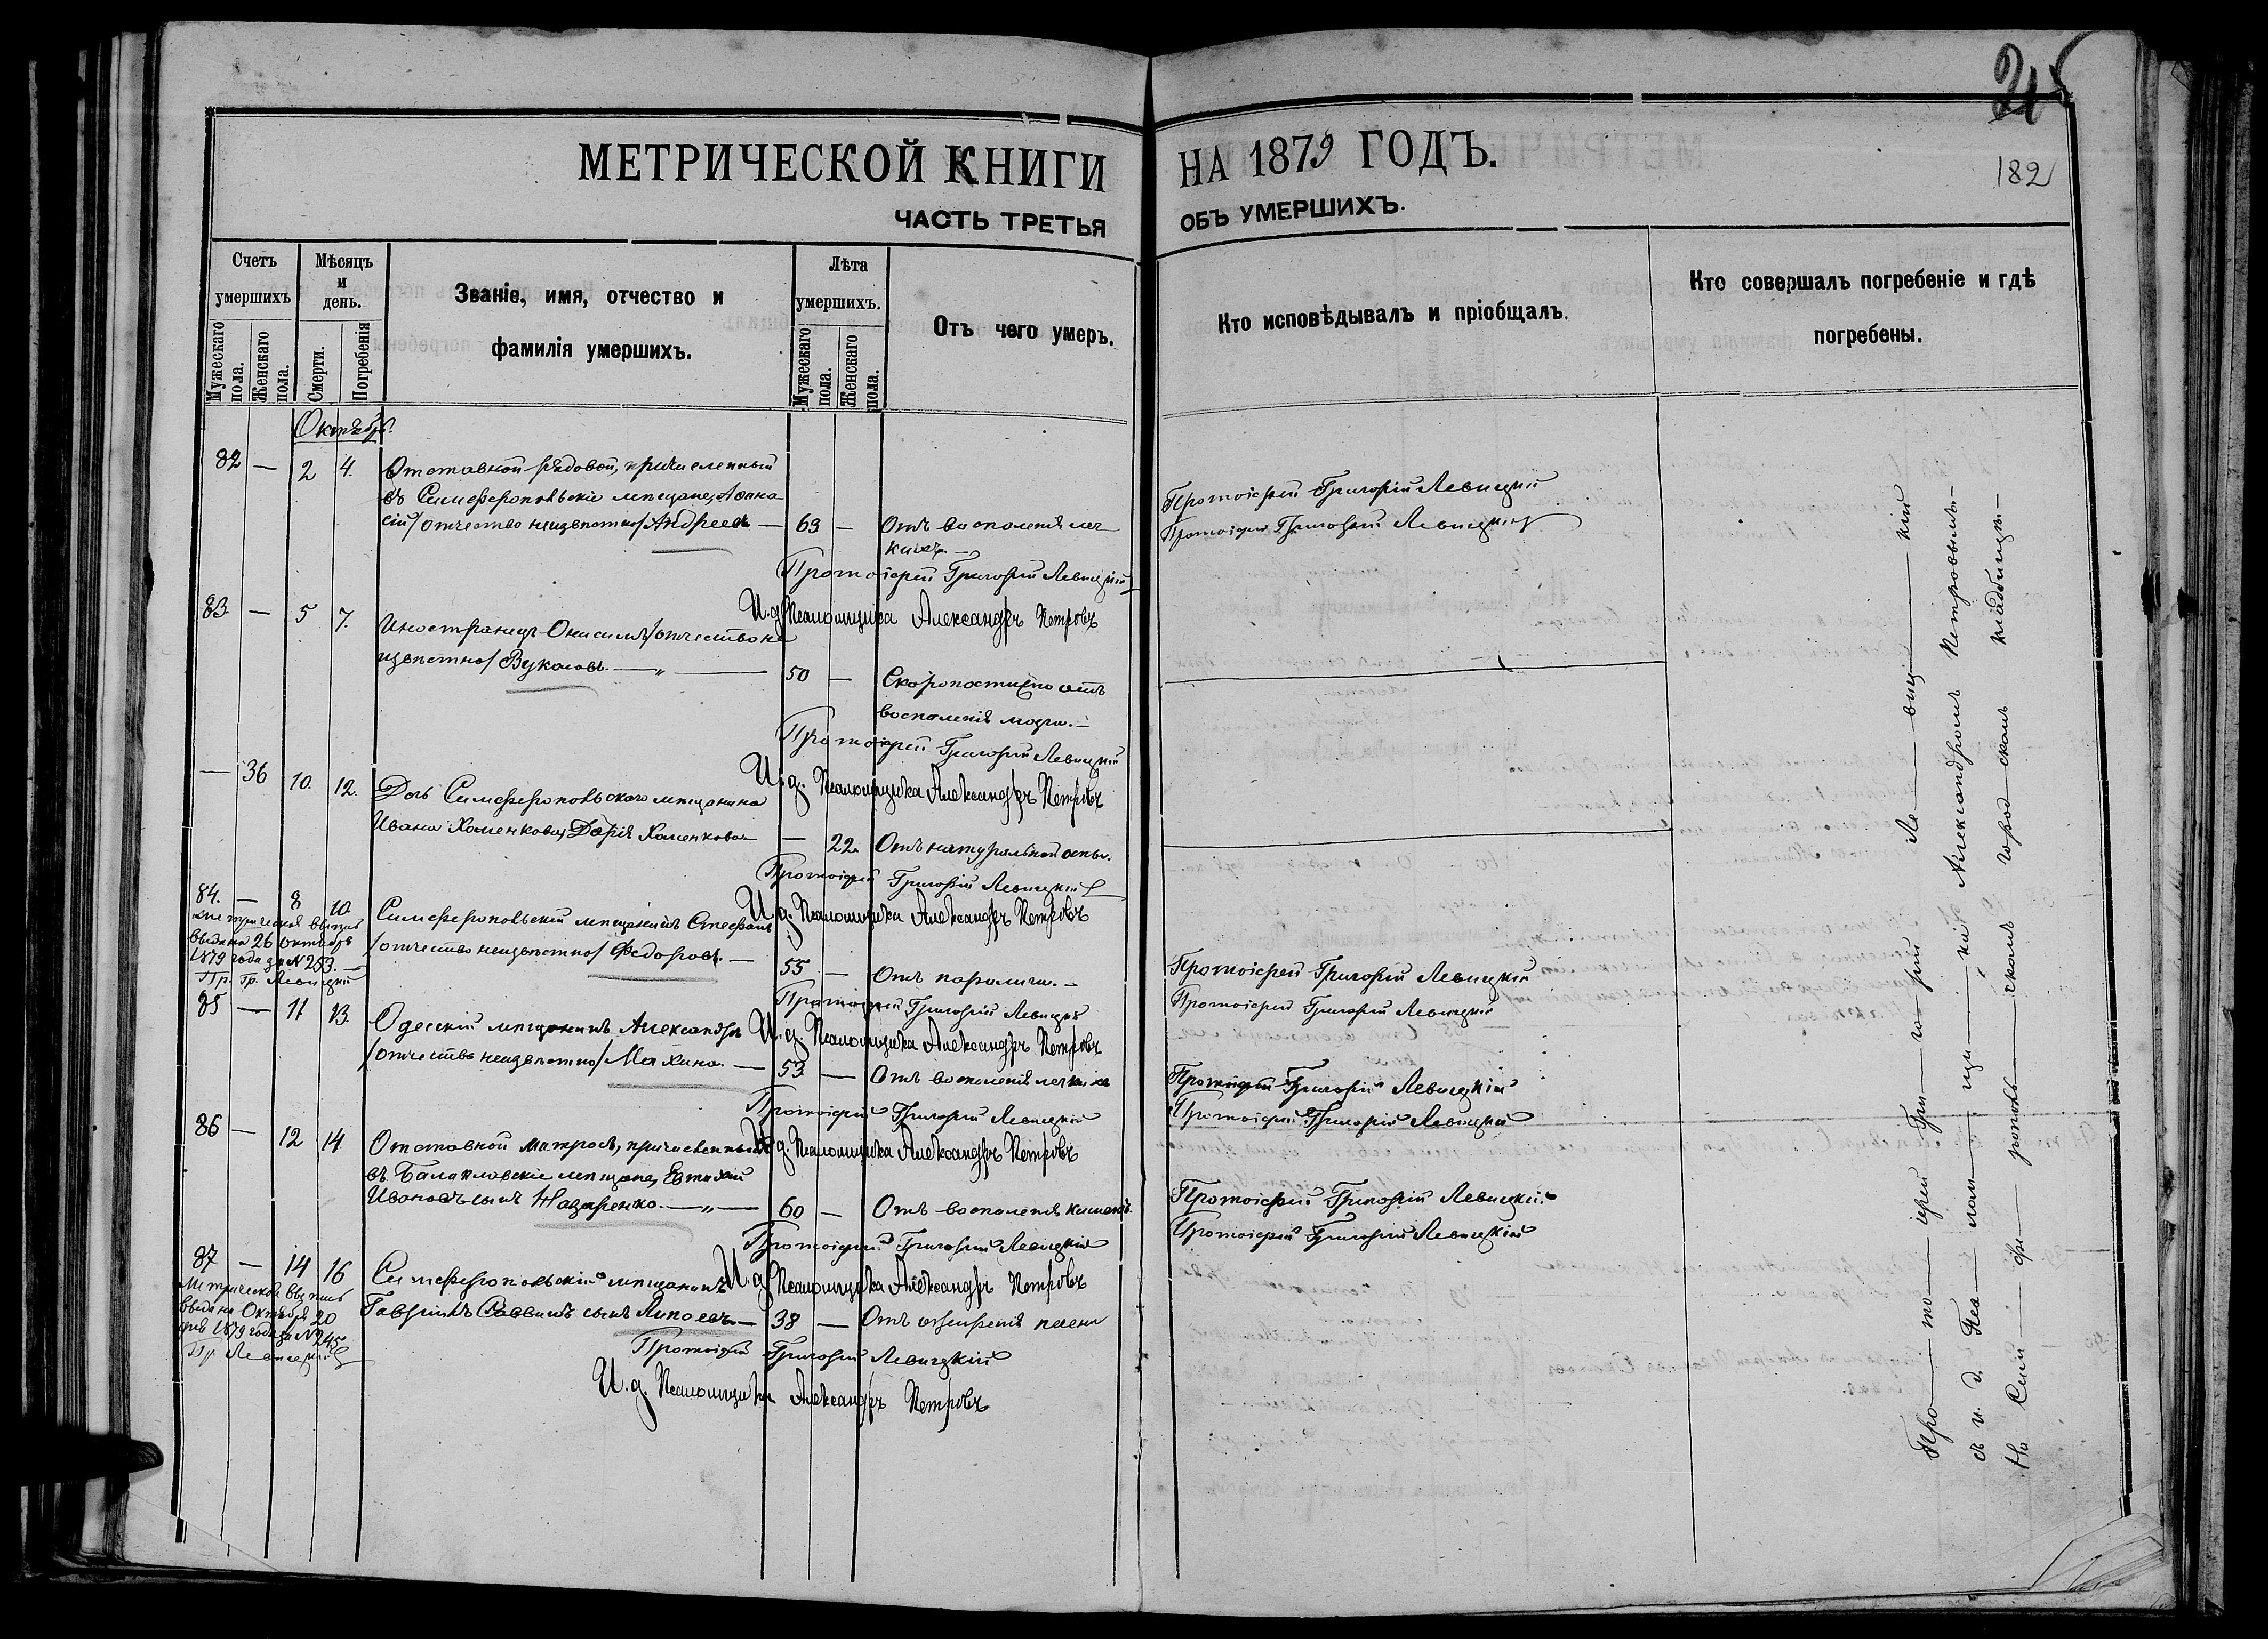 215
182
МЕТРИЧЕСКОЙ КНИГИ НА 1879 ГОДЪ.
ЧАСТЬ ТРЕТЬЯ ОБЪ УМЕРШИХЪ.
Счетъ умершихъ
Мужескаго пола.
Женскаго пола.
Мѣсяцъ и день.
Смерти.
Погребенія
Званіе, имя, отчество и
фамилія умершихъ.
Лѣта умершихъ.
Мужескаго пола.
Женскаго пола.
Отъ чего умеръ.
Кто исповѣдывалъ и пріобщалъ.
Кто совершалъ погребеніе и гдѣ
погребены.
Октябрь
82 — 2 4. Отставной рядовой, причисленный
въ Симферопольскіе мѣщане, Афана-
сій /отчество неизвѣстно/ Андреевъ — 63 — Отъ воспаленія лег-
кихъ. —
Протоіерей Григорій Левицкій
Протоіерей Григорій Левицкій
Протоіерей Григорій Левицкій
И.д. Псаломщика Александръ Петровъ
83 — 5 7. Иностранецъ Онисимъ /отчество не
извѣстно/ Вукасовъ. — „ — 50 — Скоропостижно отъ
воспаленія мозга. —
Протоіерей Григорій Левицкій
И.д. Псаломщика Александръ Петровъ
— 36 10. 12. Дочь Симферопольскаго мѣщанина
Ивана Хоменкова, Дарія Хоменкова — — 22 Отъ натуральной оспы.
Протоіерей Григорій Левицкій
И.д. Псаломщика Александръ Петровъ
84. — 8 10 Симферопольскій мѣщанинъ Стефанъ
/отчество неизвѣстно/ Федоровъ. — 55 — Отъ паралича. —
Метрическая выпись
выдана 26 октября
1879 года за № 253. —
Пр. Гр. Левицкій
Протоіерей Григорій Левицкій
Протоіерей Григорій Левицкій
Протоіерей Григорій Левицкій
И.д. Псаломщика Александръ Петровъ
85 — 11 13. Одесскій мѣщанинъ Александръ
/отчество неизвѣстно/ Махина. — 53 — Отъ воспаленія легкихъ
Протоіерей Григорій Левицкій
Протоіерей Григорій Левицкій
Протоіерей Григорій Левицкій
И.д. Псаломщика Александръ Петровъ
86 — 12 14 Отставной матросъ, причисленный
въ Балаклавскіе мѣщане, Евтихій
Ивановъ сынъ Назаренко. — „ — 60 — Отъ воспаленія кишекъ.
Протоіерей Григорій Левицкій
Протоіерей Григорій Левицкій
Протоіерей Григорій Левицкій
И.д. Псаломщика Александръ Петровъ
87 — 14 16 Симферопольскій мѣщанинъ
Гавріилъ Саввинъ сынъ — 38 — Отъ
Метрическая выпись
выдана Октября 20
дня 1879 года за № 245
Пр Левицкій
Протоіерей Григорій Левицкій
И.д. Псаломщика Александръ Петровъ
Про — то — іерей Гри — го — рій Ле — виц — кій
съ и. д. Пса — лом — щи — ка Александромъ Петровымъ —
На Сим — фе — рополь — скомъ город — скомъ кладбищѣ. —